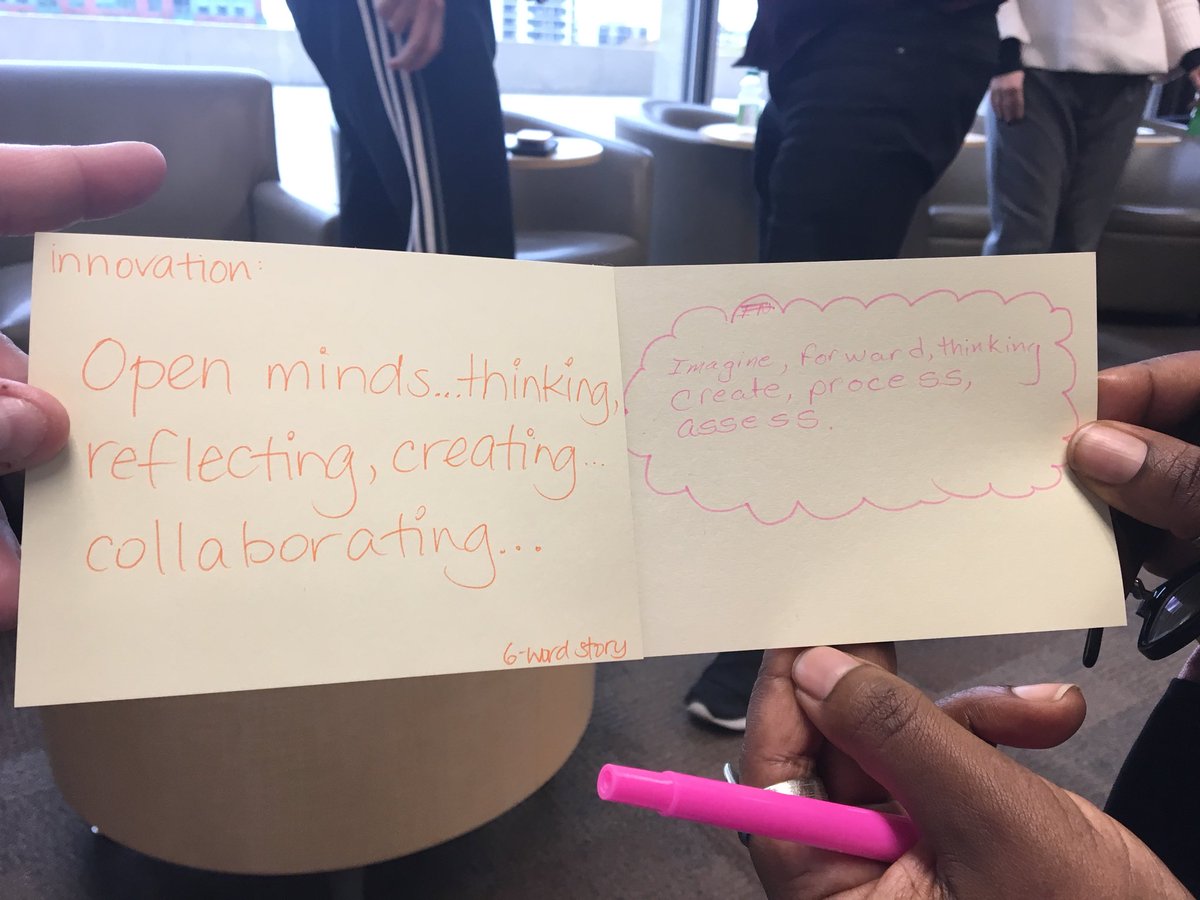 innovation:
Open minds...thinking,
reflecting, creating...
collaborating...
6-word story
Imagine, forward, thinking
create, process,
assess.